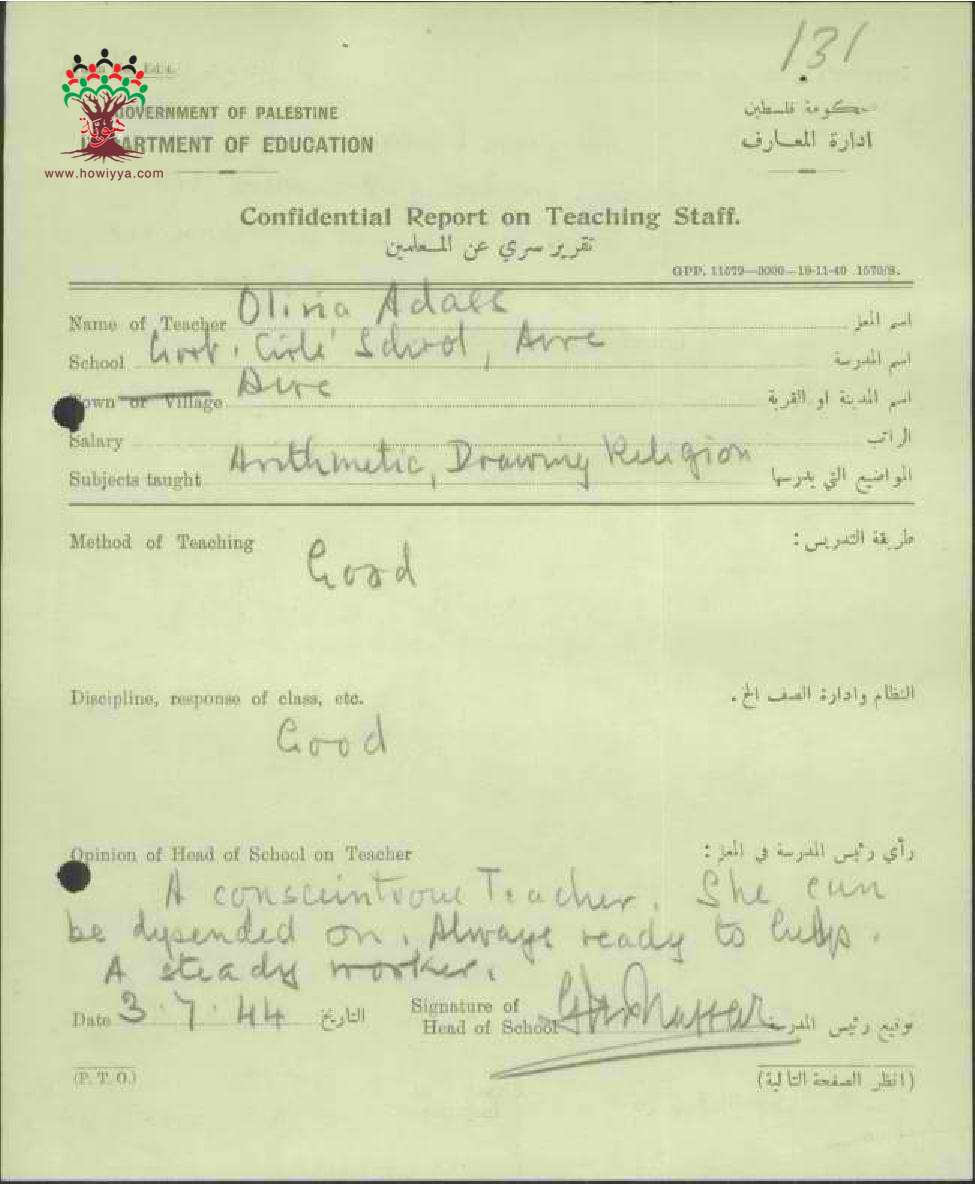 131
Edu.
GOVERNMENT OF PALESTINE
حكومة فلسطين
DEPARTMENT OF EDUCATION
ادارة المعارف
www.howiyya.com
Confidential Report on Teaching Staff.
تقرير سري عن المعلمين
GPP. 11579—5000—18-11-40 1570/S.
Name of Teacher Olivia Adass اسم المعلم
School Govt. Girls' School, Acre اسم المدرسة
Town or Village Acre اسم المدينة او القرية
Salary الراتب
Subjects taught Arithmetic, Drawing Religion المواضيع التي يدرسها
Method of Teaching طريقة التدريس :
Good
Discipline, response of class, etc. النظام وادارة الصف الخ .
Good
Opinion of Head of School on Teacher رأي رئيس المدرسة في المعلم :
A consceintious Teacher. She can
be depended on. Always ready to help.
A steady worker.
Date 3.7.44 التاريخ Signature of Head of School توقيع رئيس المدرسة
(P. T. O.) (انظر الصفحة التالية)